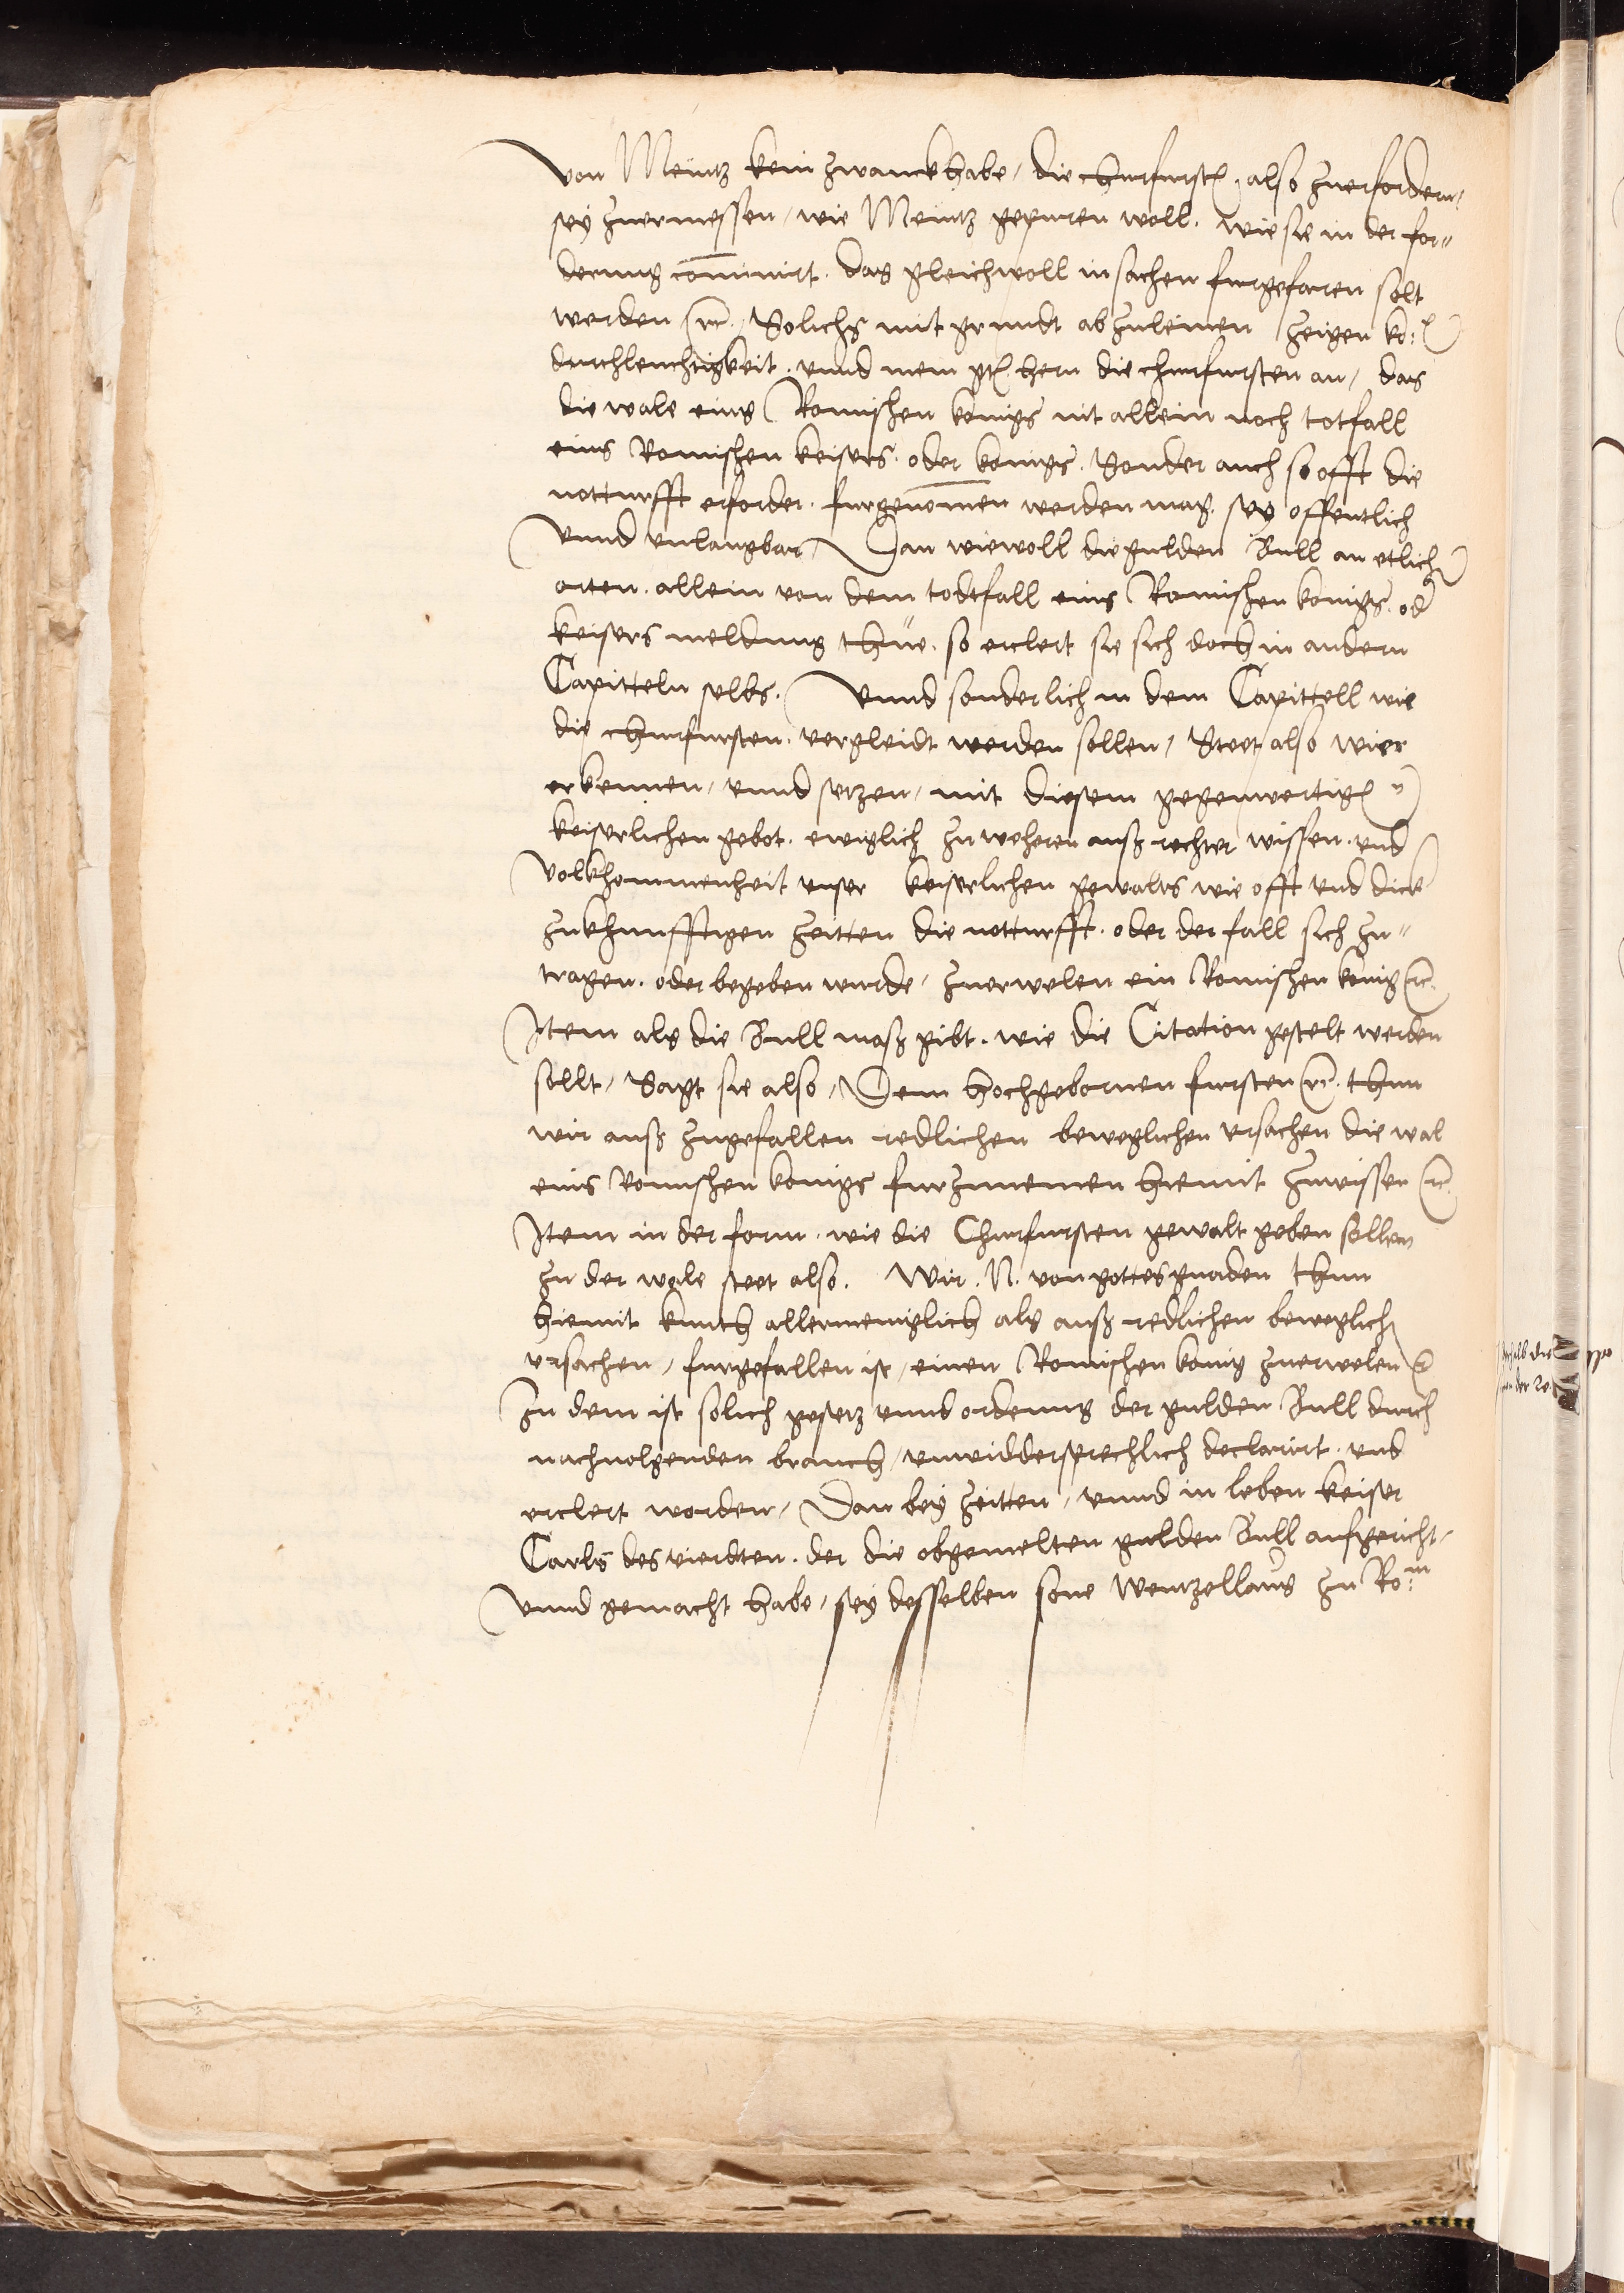 von Meintz kein zwanckh habe, die churfursten, also zuerfordern,
sey zuermessen, wie Meintz gepuren woll. wie sie in der for„
derung cominirt. das gleichwoll in sachen furgefaren solt
werden etc. Solichs mit grundt abzuleinen zeigen ko: e
durchleuchtigkeit. vnnd mein gt. hern die churfursten an, das
die wale eins Romischen konigs nit allein noch totfall
eins Romischen keisers. oder konigs. Sonder auch so offt die
notturfft erforder. furgenomen werden mag. sey offentlich
vnnd vnlaugbar, Dan wiewoll die gulden Bull an etlich
orten. allein von dem todtfall eins Romischen konigs. od
keisers meldung thue. so erclert sie sich doch in andern
Capitteln selbs. Vnnd sonderlich in dem Capittell wie
die churfursten. vergleidt werden sollen, Steet also wier
erkennen, vnnd setzen, mit diesem gegenwertigen
keiserlichen gebot. ewiglich zu weheren auß rechter wissen. vnd
volkhommenheit vnser keiserlichen gewalts wie offt vnd dick
zukhunfftigen zeitten die notturfft. oder der fall sich zu„
tragen. oder begeben wurde, zuerwelen ein Romischen konig etc.
Item als die Bull maß gibt. wie die Citation gestelt werden
sollt, Sagt sie also, Dem hochgebornen fursten etc. thun
wir auß zugefallen redlichen beweglichen vrsachen die wal
eins Romischen konigs furzunemen hiemit zuwissen etc.
Item in der form. wie die Churfursten gewalt geben sollen
zu der wale steet also. Wir. N. von gottes gnaden thun
hiemit kunth allermeniglich als auß redlichen beweglich
vrsachen, furgefallen ist, einen Romischen konig zuerwelen etc.
Zu dem ist solich gesetz vnnd ordenung der gulden Bull durch
nachuolgenden brauch, vnwiddersprechlich declarirt. vnd
erclert worden, Dan bey zeitten, vnnd in leben keiser
Carls des vierdten. der die obgemelten gulden Bull aufgericht,
vnnd gemacht habe, sey desselben sone Wentzellaus zu Rom: